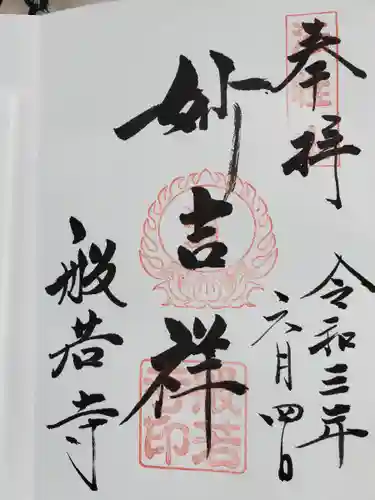 奉拝
令和三年
六月四日
妙吉祥
般若寺
般若寺印